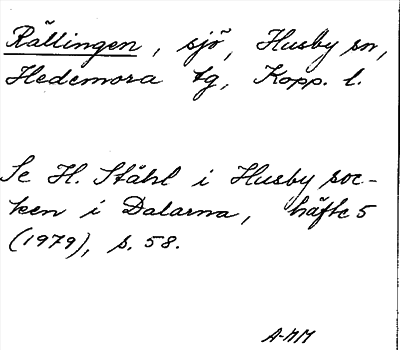 Rällingen, sjö, Husby sn,
Hedemora tg, Kopp. l.
Se H. Ståhl i Husby soc-
ken i Dalarna, häfte 5
(1979), s. 58.
A-MM